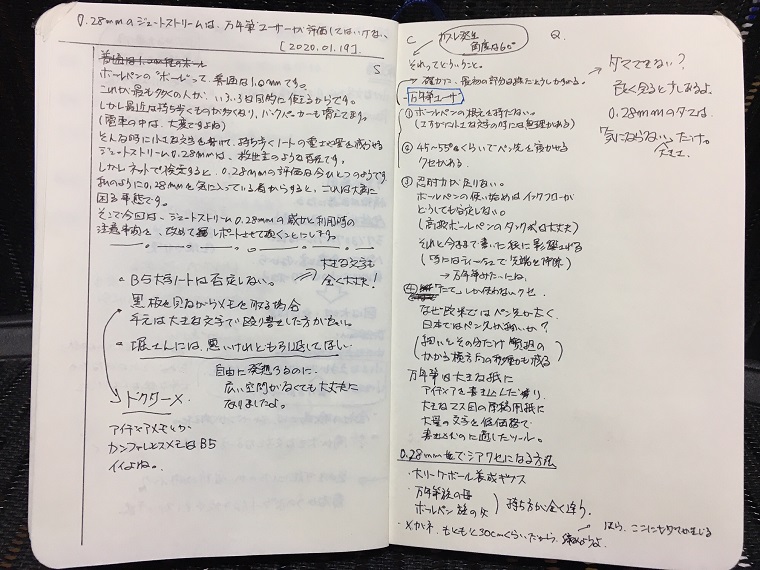 0.28mmのジェットストリームは、万年筆ユーザーが評価してはいけない
[2020.01.19]
S
ボールペンの"ボール"って、普通は1.0mmです。
これが最も多くの人が、いろいろな目的に使えるからです。
しかし最近は持ち歩くものが多くなり、バックパッカーも増えてます。
(電車の中は、大変ですよね)
そんな時に小さな文字を書けて、持ち歩くノートの重さや量を減らせる
ジェットストリーム0.28mmは、救世主のような存在です。
しかしネットで検索すると、0.28mmの評価は今ひとつのようです
私のように0.28mmを気に入っている者からすると、これは大変に
困る事態です。
そこで今回は、ジェットストリーム0.28mmの威力と利用時の
注意事項を、改めてレポートさせて頂くことにしよう。
・B5大学ノートは否定しない。
大きな文字も
全く大丈夫!
黒板を見ながらメモを取る場合
手元は大きな文字で殴り書きした方が良い。
・堀さんには、悪いけれども引返してほしい
自由に発想するのに
広い空間がなくても大丈夫に
なりましたよ。
ドクターX
アイデアメモとか
カンファレンスメモはB5
イイよね。
C
カスレ発生
角度は60°
Q.
それってどういうこと。
→ 確かに、最初の部分は
万年筆ユーザ
① ボールペンの
(ですが小さな文字の時には無理がある)
② 45~55°くらいでペン先を寝かせる
クセがある
③ 忍耐力が足りない。
ボールペンの使い始めはインクフローが
どうしても安定しない。
(高級ボールペンのタンク式は大丈夫)
それと今まで書いた紙に影響される
(時にはティッシュで先端を掃除)
→ 万年筆みたいにね
④ "たて"しか使わないクセ
なぜ欧米ではペン先が太く、
日本ではペン先が細いか?
(細いとその分だけ
かかる横方向の も残る)
万年筆は大きな紙に
アイデアを書き込んだり
大きなマス目の原稿用紙に
大量の文字を低価格で
書き込むのに適したツール。
0.28mmでシアワセになる方法
・大リーグボール養成ギプス
・万年筆
ボールペン
持ち方が全く違う。
・メガネ、もともと30cmくらいだから
ほら、ここにもダマが生じる
ダマできない?
良く見るとチョコあるよ
0.28mmのダマは、
気にならない、だけ。